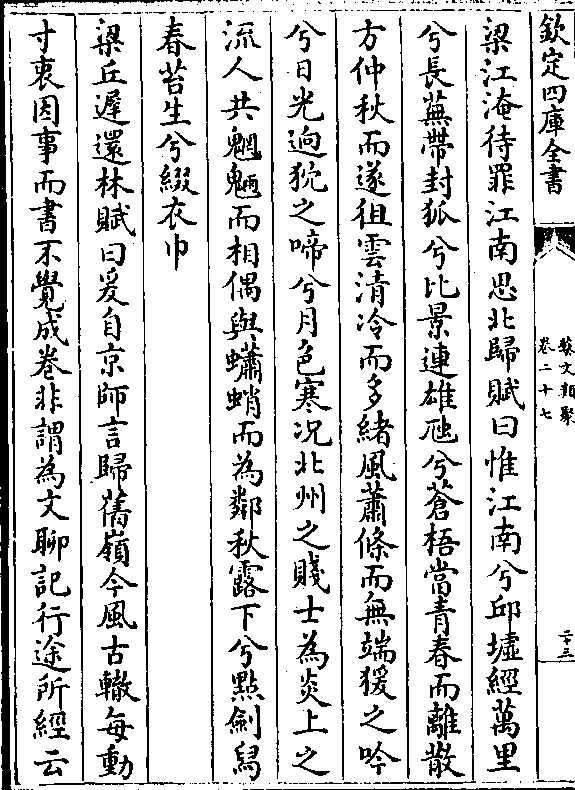 欽定四庫全書
藝文類聚
卷二十七
二十三
梁江淹待罪江南思北歸賦曰惟江南兮邱墟經萬里
兮長蕪帶封狐兮比景連雄虺兮蒼梧當青春而離散
方仲秋而遂徂雲清冷而多緒風蕭條而無端猨之吟
兮日光逈狖之啼兮月色寒况北州之賤士為炎土之
流人共魍魎而相偶與蠨蛸而為鄰秋露下兮點劍舄
春苔生兮綴衣巾
梁丘遲還林賦曰爰自京師言歸舊嶺今風古轍每動
寸衷因事而書不覺成卷非謂為文聊記行途所經云